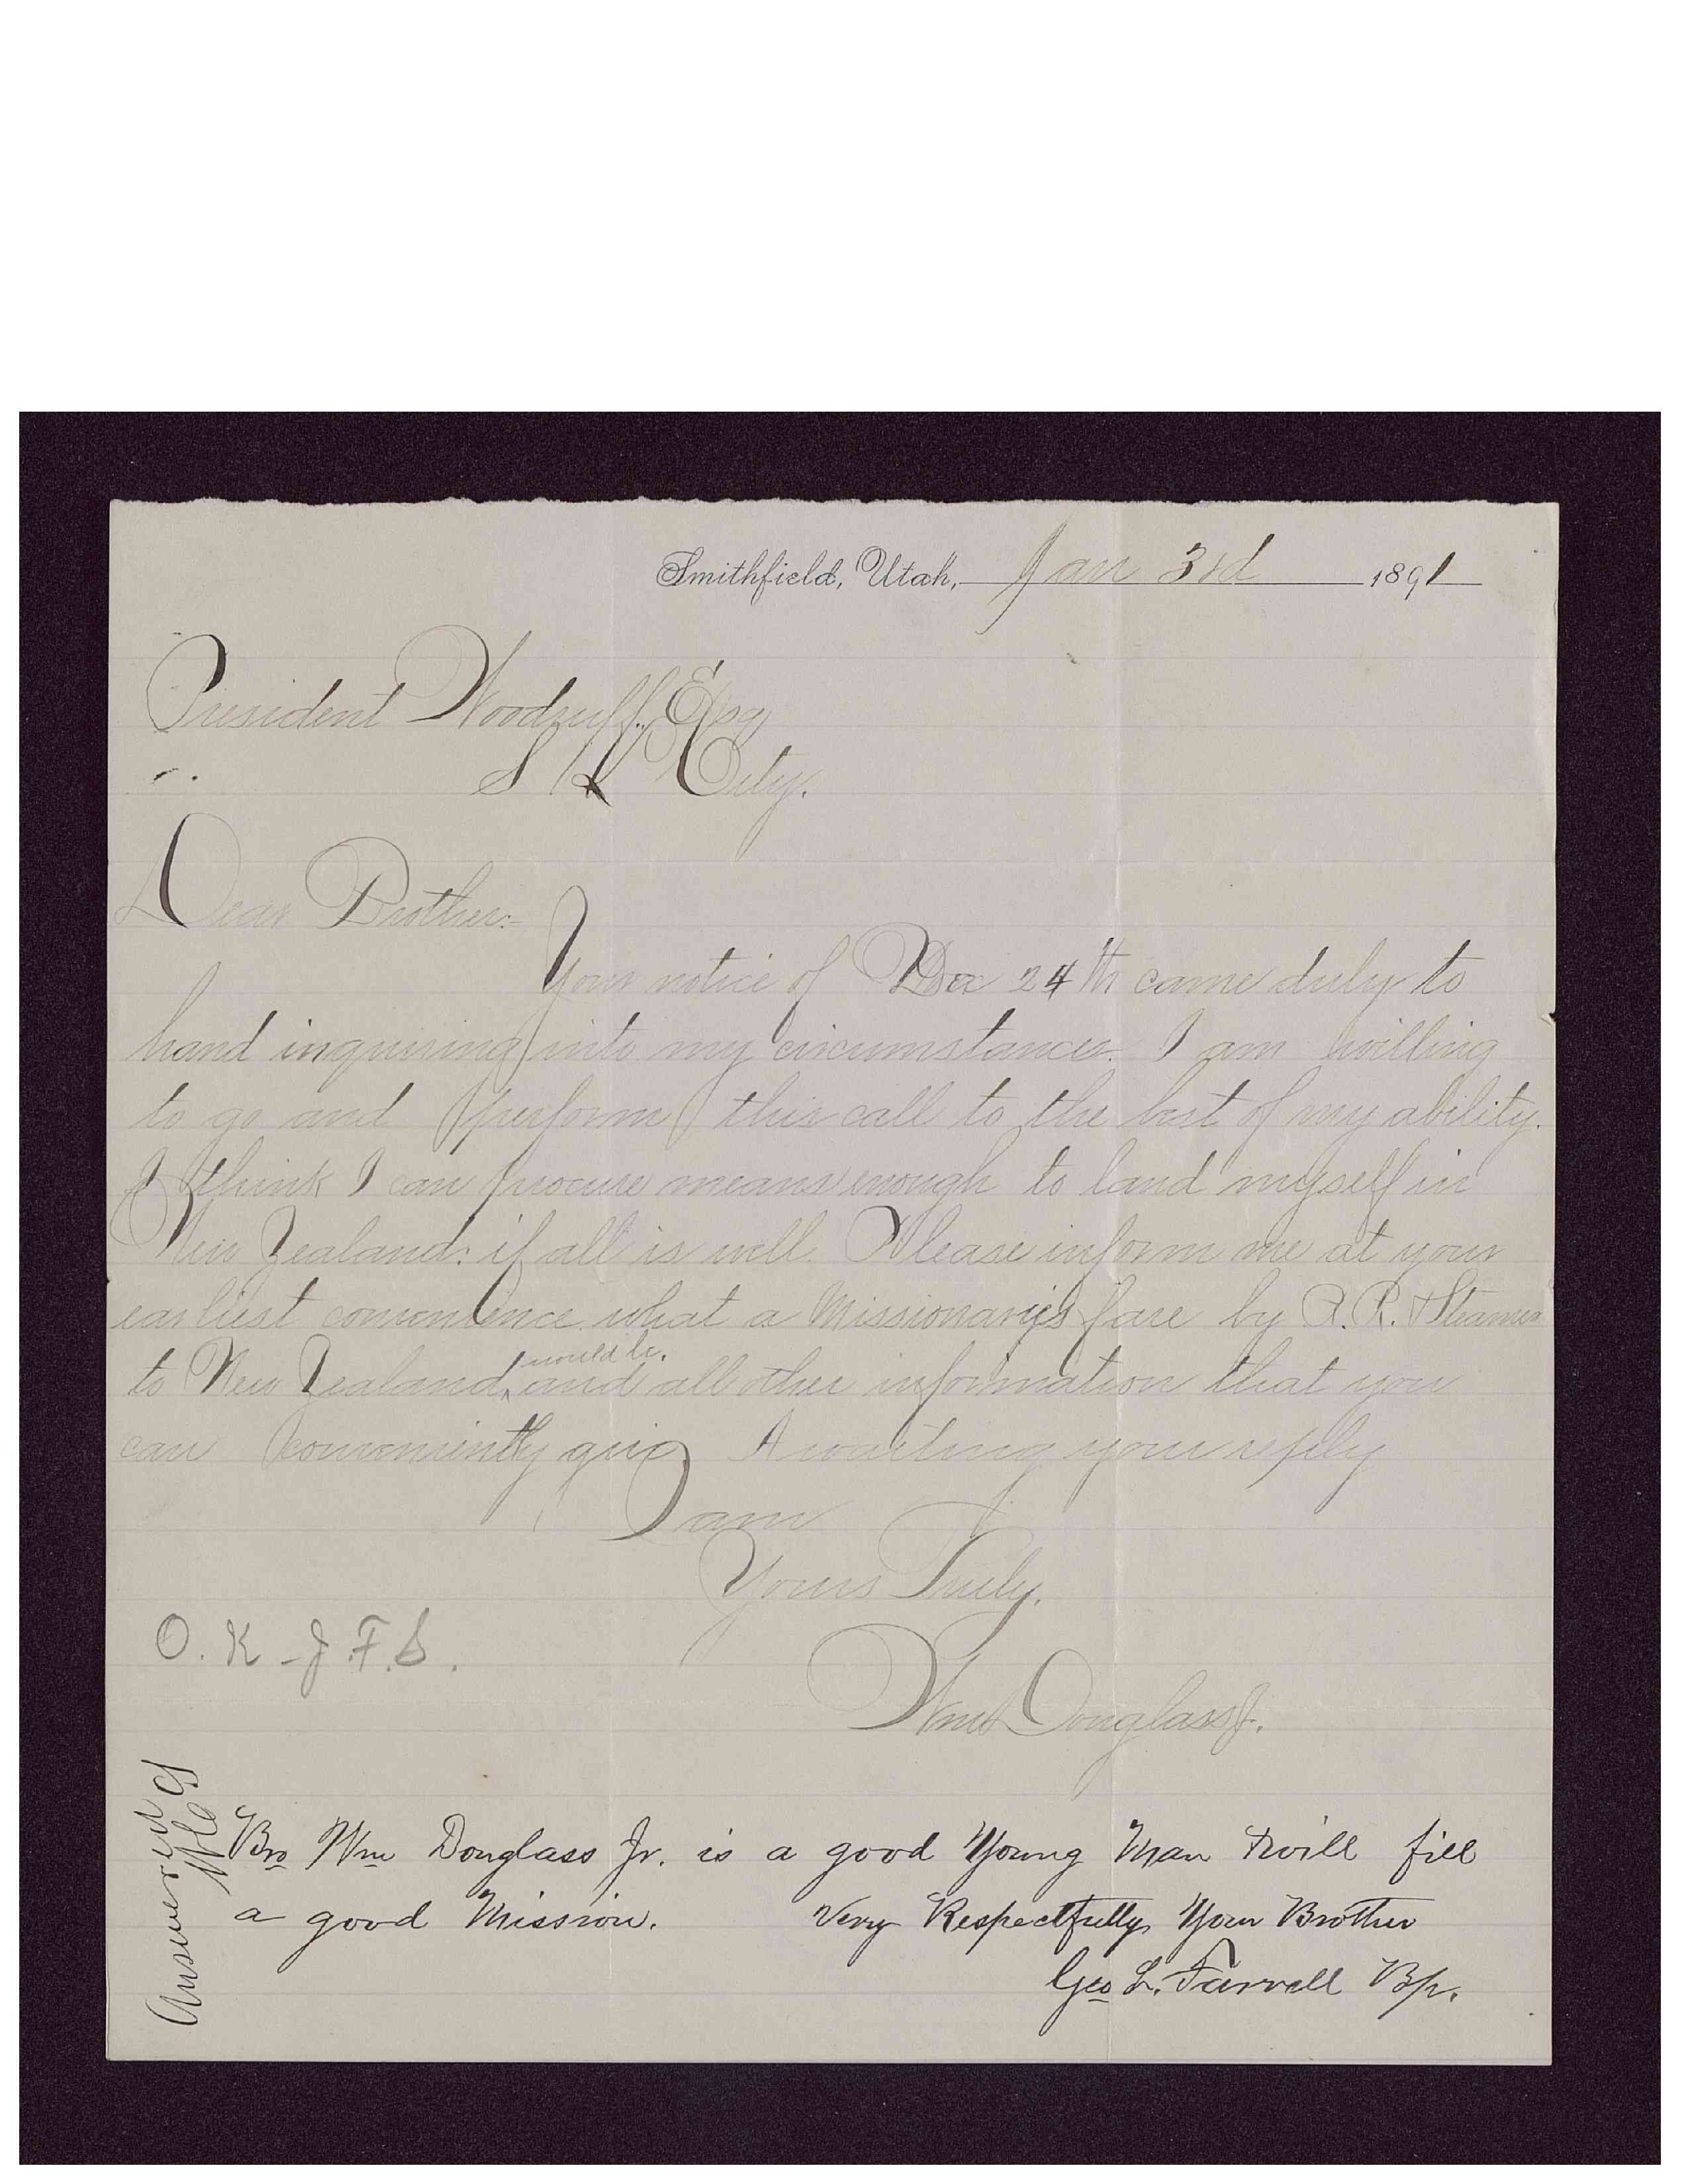 Smithfield, Utah, Jan 3rd 1891
President Woodruff, Esq
S L City.
Dear Brother:-
Your notice of Dec 24th came duly to
hand inquiring into my circumstances. I am willing
to go and perform this call to the best of my ability.
I think I can procure means enough to land myself in
New Zealand: if all is well. Please inform me at your
earliest convenience what a Missionary's fare by R.R. & Steamer
would be.
to New Zealand, and all other information that you
can conveniently give Awaiting your reply
I am
Yours Truly,
Wm Douglass Jr.
O.K - J.F.S.
Answered
Bro Wm Douglass Jr. is a good Young Man & will fill
a good Mission. Very Respectfully Your Brother
Geo L. Farrell Bp.